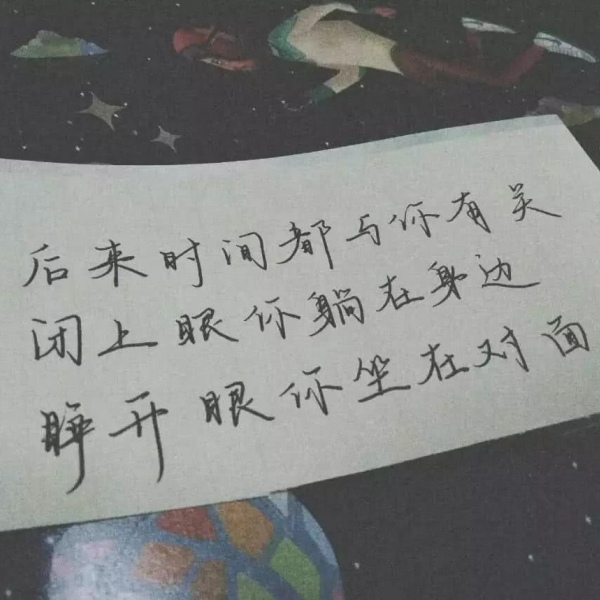 后来时间都与你有关
闭上眼你躺在身边
睁开眼你坐在对面